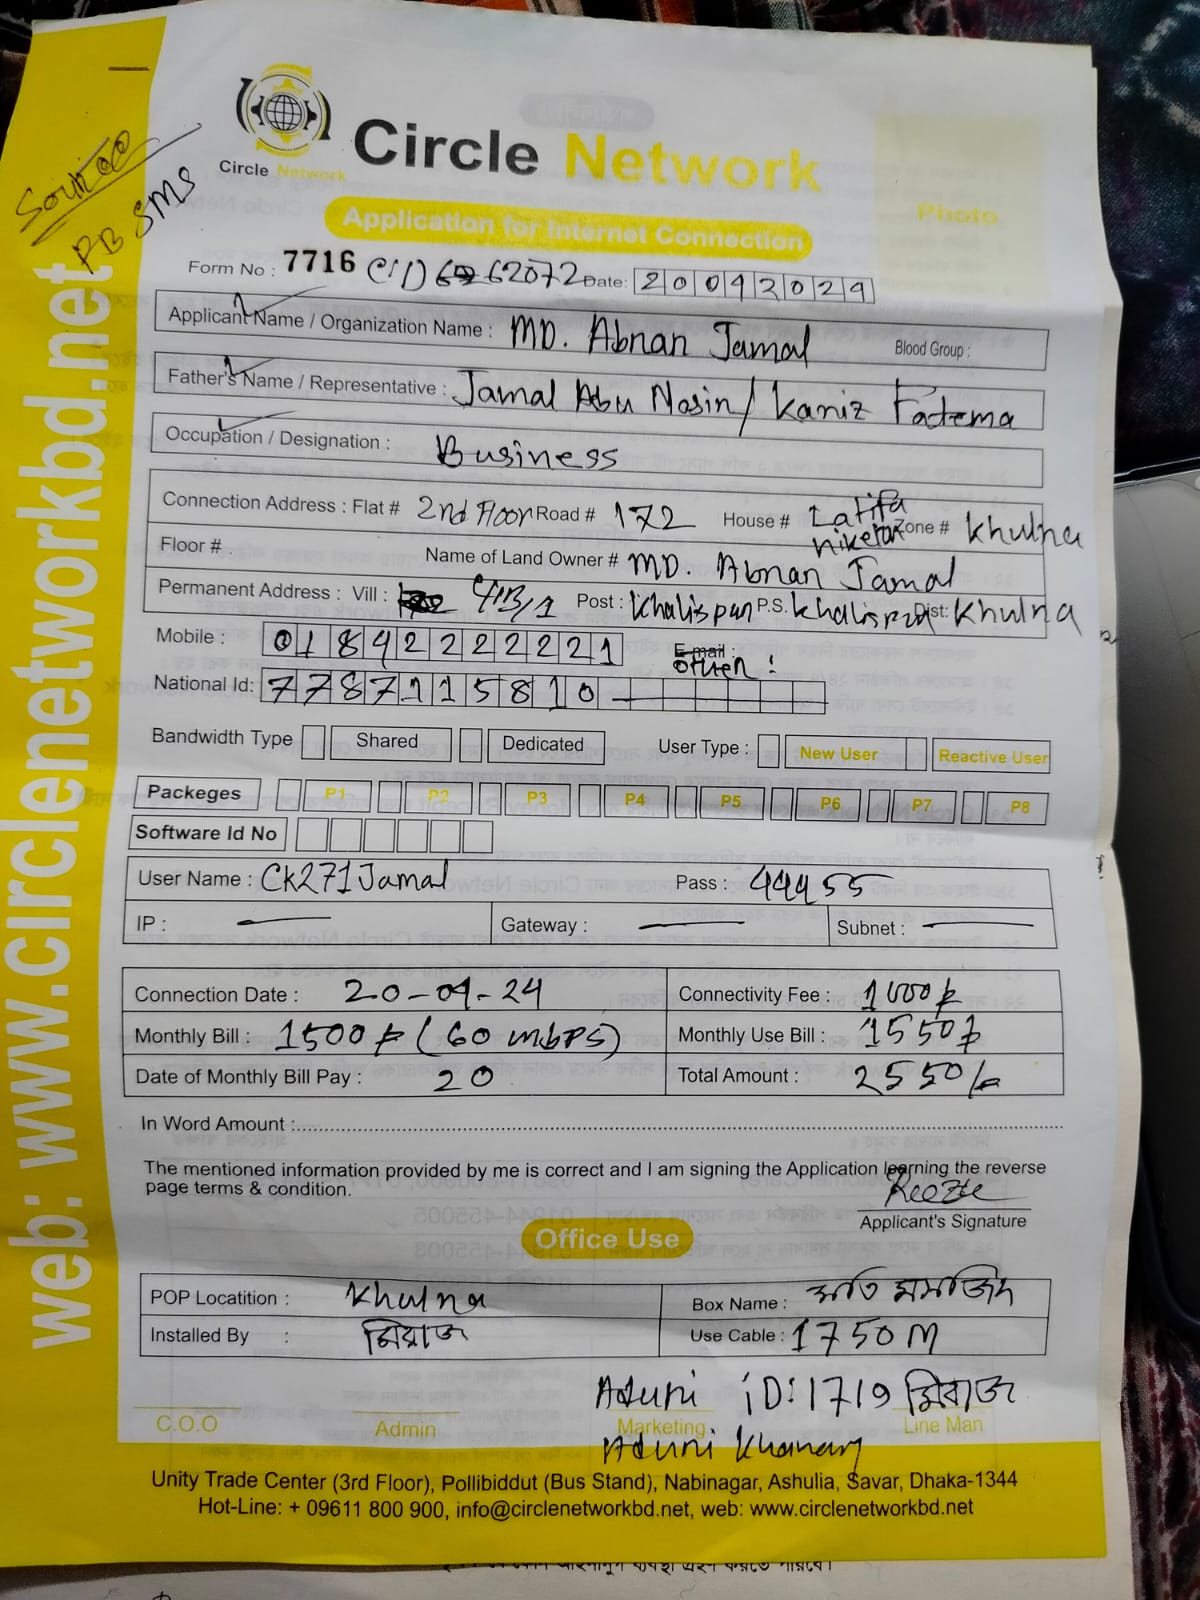 Circle Network
Circle Network
Photo
Application for Internet Connection
PB SMS
Form No : 7716 CID 62072 Date: 20042024
Applicant Name / Organization Name : MD. Abnan Jamal Blood Group :
Father's Name / Representative : Jamal Abu Nasin / Kaniz Fatema
Occupation / Designation : Business
Connection Address : Flat # 2nd Floor Road # 172 House # Latifa niketan Zone # Khulna
Floor # Name of Land Owner # MD. Abnan Jamal
Permanent Address : Vill : Post : Khalispur P.S. Khalispur Dist: Khulna
Mobile : 01842222221 E-mail :
other :
National Id: 7787115810
Bandwidth Type Shared Dedicated User Type : New User Reactive User
Packeges P1 P2 P3 P4 P5 P6 P7 P8
Software Id No
User Name : CK271Jamal Pass : 44455
IP : — Gateway : — Subnet : —
Connection Date : 20-04-24 Connectivity Fee : 1000/-
Monthly Bill : 1500/- (60 mbps) Monthly Use Bill : 1550/-
Date of Monthly Bill Pay : 20 Total Amount : 2550/-
In Word Amount :
The mentioned information provided by me is correct and I am signing the Application learning the reverse
page terms & condition.
Applicant's Signature
Office Use
POP Locatition : Khulna Box Name : মসজিদ
Installed By : মিরাজ Use Cable : 1750 M
Aduni iD:1719 মিরাজ
C.O.O Admin Marketing Line Man
Aduni
Unity Trade Center (3rd Floor), Pollibiddut (Bus Stand), Nabinagar, Ashulia, Savar, Dhaka-1344
Hot-Line: + 09611 800 900, info@circlenetworkbd.net, web: www.circlenetworkbd.net
web: www.circlenetworkbd.net